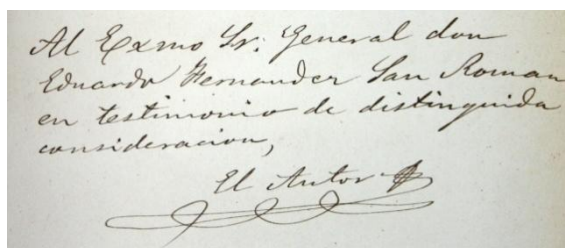 Al Exmo Sr: General don
Eduardo Fernandez San Roman
en testimonio de distinguida
consideracion,
El Autor